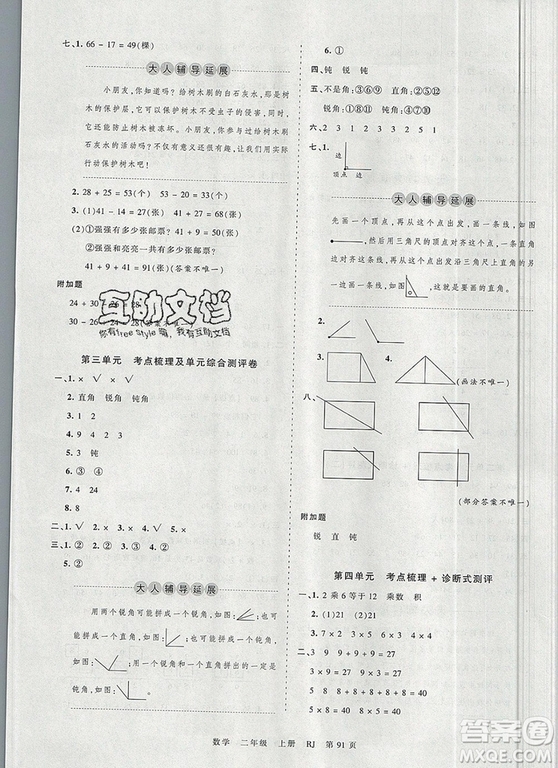 七、1. 66 - 17 = 49(棵)
大人辅导延展
小朋友,你知道吗?给树木刷的白石灰水是树
木的保护层,它可以保护树木不受虫子的侵害,同时,
还可以防止树木被冻坏。小朋友,参与过给树木刷
石灰水的活动吗?如果没有,可以让大人带我们用实际
行动保护树木吧!
2. 28 + 25 = 53(个) 53 - 35 = 18(个)
3. (1)41 - 14 = 27(张) 41 + 27 = 68(张)
(2)①强强有多少张邮票?
②强强和亮亮一共有多少张邮票?
41 + 9 + 41 = 91(张)(答案不唯一)
附加题
24 + 30
30 - 26
互助文档
你有free style 嘞,我有互助文档
第三单元 考点梳理及单元综合测评卷
一、1. × √ × √
2. 直角 锐角 钝角
3. 1 2
4. 9 23
5. 3 钝
6. 2
7. 2
8. 4 24
二、1. √ 2. × 3. × 4. √ 5. ×
三、1. ② 2. ② 3. ③ 4. ② 5. ③
6. ①
大人辅导延展
用两个锐角可能拼成一个锐角,如图:
可能拼成一个直角,如图: 也可能拼成一个钝角,
如图: 。但是用一个直角和一个锐角拼成的一定是
钝角,如图:
6. ①
四、钝 锐 钝
五、不是角:③⑥⑨ 直角:②⑤⑫
锐角:①⑧⑪ 钝角:④⑦⑩
六、2 9 3 1 2 3 1
七、1.
大人辅导延展
先画一个顶点,再从这个点出发,画一条线,如图:
,然后用三角尺的顶点对齐这个点,一条直角
边对齐这条线,再从这个点出发沿三角尺上的另一条直角
边画一条线,如图:
2.
3. (画法不唯一)
八、
(部分答案不唯一)
附加题
锐 直 钝
第四单元 考点梳理 + 诊断式测评
一、1. 2乘6等于12 乘数 积
2. (1)21 (2)21
二、3 9 9 + 9 + 9 = 27
3 × 9 = 27 9 × 3 = 27
5 8 8 + 8 + 8 + 8 + 8 = 40
5 × 8 = 40 8 × 5 = 40
数学 二年级 上册 RJ 第 91 页